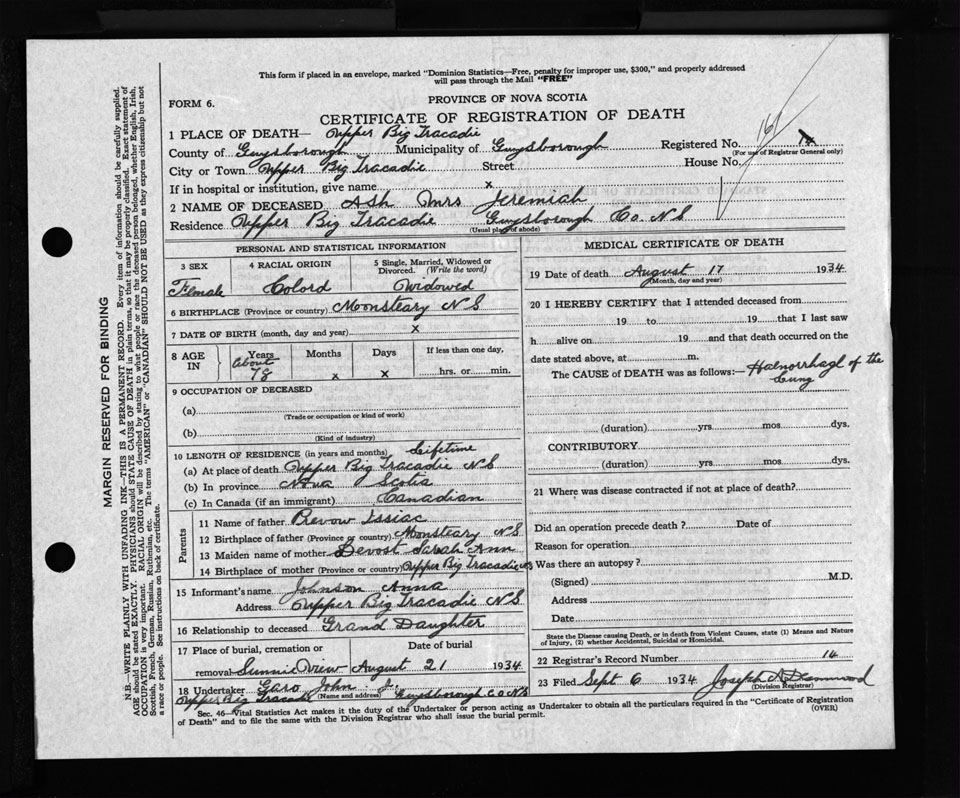 This form if placed in an envelope, marked "Dominion Statistics—Free, penalty for improper use, $300," and properly addressed
will pass through the Mail "FREE"
FORM 6.
PROVINCE OF NOVA SCOTIA
CERTIFICATE OF REGISTRATION OF DEATH
1 PLACE OF DEATH— Upper Big Tracadie
County of Guysborough Municipality of Guysborough Registered No.
(For use of Registrar General only)
City or Town Upper Big Tracadie Street House No.
If in hospital or institution, give name x
2 NAME OF DECEASED Ash Mrs Jeremiah
Residence Upper Big Tracadie Guysborough Co. N S
(Usual place of abode)
PERSONAL AND STATISTICAL INFORMATION
3 SEX 4 RACIAL ORIGIN 5 Single, Married, Widowed or
Divorced. (Write the word)
Female Colord Widowed
6 BIRTHPLACE (Province or country) Monsteary N S
7 DATE OF BIRTH (month, day and year) x
8 AGE IN Years Months Days If less than one day,
About 78 x x hrs. or min.
9 OCCUPATION OF DECEASED
(a)
(Trade or occupation or kind of work)
(b)
(Kind of industry)
10 LENGTH OF RESIDENCE (in years and months) Lifetime
(a) At place of death Upper Big Tracadie N S
(b) In province Nova Scotia
(c) In Canada (if an immigrant) Canadian
Parents
11 Name of father Prevow Issiac
12 Birthplace of father (Province or country) Monsteary N S
13 Maiden name of mother Devost Sarah Ann
14 Birthplace of mother (Province or country) Upper Big Tracadie N S
15 Informant's name Johnson Anna
Address Upper Big Tracadie N S
16 Relationship to deceased Grand Daughter
17 Place of burial, cremation or Date of burial
removal Sunnie View August 21 1934
18 Undertaker John J. Guysborough Co N S
(Name and address)
Upper Big Tracadie
MEDICAL CERTIFICATE OF DEATH
19 Date of death August 17 1934
(Month, day and year)
20 I HEREBY CERTIFY that I attended deceased from
19 to 19 that I last saw
h alive on 19 and that death occurred on the
date stated above, at m.
The CAUSE OF DEATH was as follows:— Haemorrhagl of the
Lung
(duration) yrs mos dys.
CONTRIBUTORY
(duration) yrs. mos. dys.
21 Where was disease contracted if not at place of death?
Did an operation precede death? Date of
Reason for operation
Was there an autopsy?
(Signed) M.D.
Address
Date
State the Disease causing Death, or in death from Violent Causes, state (1) Means and Nature
of Injury, (2) whether Accidental, Suicidal or Homicidal.
22 Registrar's Record Number 14
23 Filed Sept 6 1934 Joseph A
(Division Registrar)
Sec. 46—Vital Statistics Act makes it the duty of the Undertaker or person acting as Undertaker to obtain all the particulars required in the "Certificate of Registration
of Death" and to file the same with the Division Registrar who shall issue the burial permit.
(OVER)
MARGIN RESERVED FOR BINDING
N.B.—WRITE PLAINLY WITH UNFADING INK—THIS IS A PERMANENT RECORD. Every item of information should be carefully supplied.
AGE should be stated EXACTLY. PHYSICIANS should STATE CAUSE OF DEATH in plain terms, so that it may be properly classified. Exact statement of
OCCUPATION is very important. RACIAL ORIGIN will be described by stating to what people or race the deceased person belonged, whether English, Irish,
Scottish, French, German, Russian, Ruthenian, etc. The terms "AMERICAN" or "CANADIAN" SHOULD NOT BE USED as they express citizenship but not
a race or people. See instructions on back of certificate.